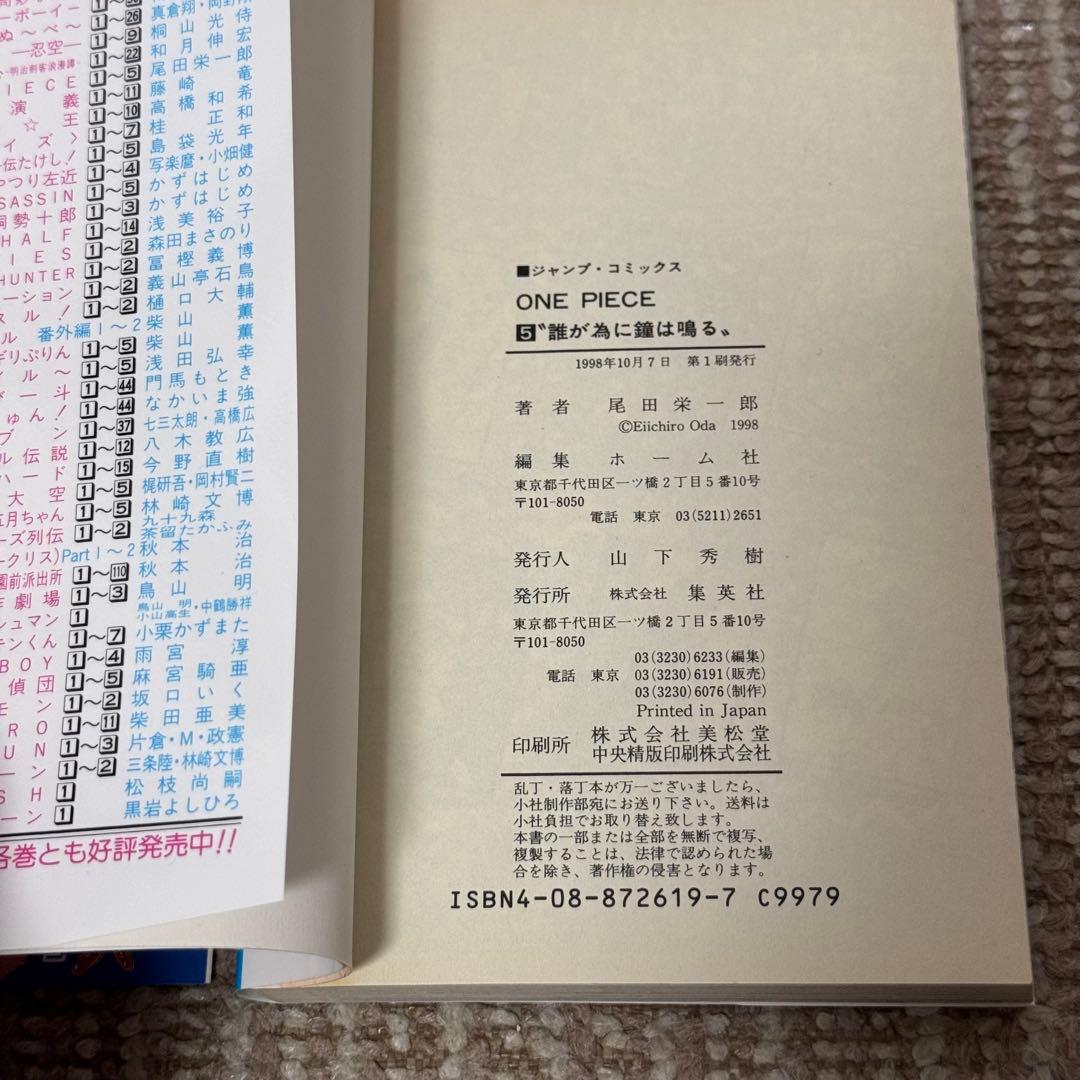 ーボーイー
真倉翔・岡野剛
1～26
桐山光侍
ぬ～べ～
1～9
和月伸宏
―忍空―
1～22
尾田栄一郎
-明治剣客浪漫譚-
1～5
藤崎竜
IECE
1～11
高橋和希
演義
1～10
桂正和
☆王
1～7
島袋光年
イズ〉
1～5
写楽麿・小畑健
伝たけし!
1～4
かずはじめ
やつり左近
1～5
かずはじめ
SASSIN
1～3
浅美裕子
桐勢十郎
1～14
森田まさのり
HALF
1～2
冨樫義博
IES
1～2
義山亭石鳥
HUNTER
1～2
樋口大輔
ーション
1～2
柴山薫
スル!
番外編1～2
柴山薫
ル
1～5
浅田弘幸
ギリぷりん
1～5
門馬もとき
イル～
1～44
なかいま強
ベー斗
1～44
七三太朗・高橋広
ゅん!
1～37
八木教広
ブン
1～12
今野直樹
ル伝説
1～15
梶研吾・岡村賢二
ハード
1～5
林崎文博
大空
1～5
九十九森
茶留たかふみ
五月ちゃん
1～2
ーズ列伝
Part1～2
秋本治
ークリス)
秋本治
園前派出所
1～110
鳥山明
作劇場
1～3
鳥山明・中鶴勝祥
小山高生
シュマン
1
小栗かずまた
テンくん
1～7
雨宮淳
BOY
1～4
麻宮騎亜
偵団
1～5
坂口いく
モン
1～2
柴田亜美
RO
1～11
片倉・M・政憲
UN
1～3
三条陸・林崎文博
ーン
1～2
松枝尚嗣
SH
1
黒岩よしひろ
ーン
1
各巻とも好評発売中!!
■ジャンプ・コミックス
ONE PIECE
5〝誰が為に鐘は鳴る〟
1998年10月7日 第1刷発行
著者 尾田栄一郎
©Eiichiro Oda 1998
編集 ホーム社
東京都千代田区一ツ橋2丁目5番10号
〒101-8050
電話 東京 03(5211)2651
発行人 山下秀樹
発行所 株式会社 集英社
東京都千代田区一ツ橋2丁目5番10号
〒101-8050
03(3230)6233(編集)
電話 東京 03(3230)6191(販売)
03(3230)6076(制作)
Printed in Japan
印刷所 株式会社美松堂
中央精版印刷株式会社
乱丁・落丁本が万一ございましたら、
小社制作部宛にお送り下さい。送料は
小社負担でお取り替え致します。
本書の一部または全部を無断で複写、
複製することは、法律で認められた場
合を除き、著作権の侵害となります。
ISBN4-08-872619-7 C9979